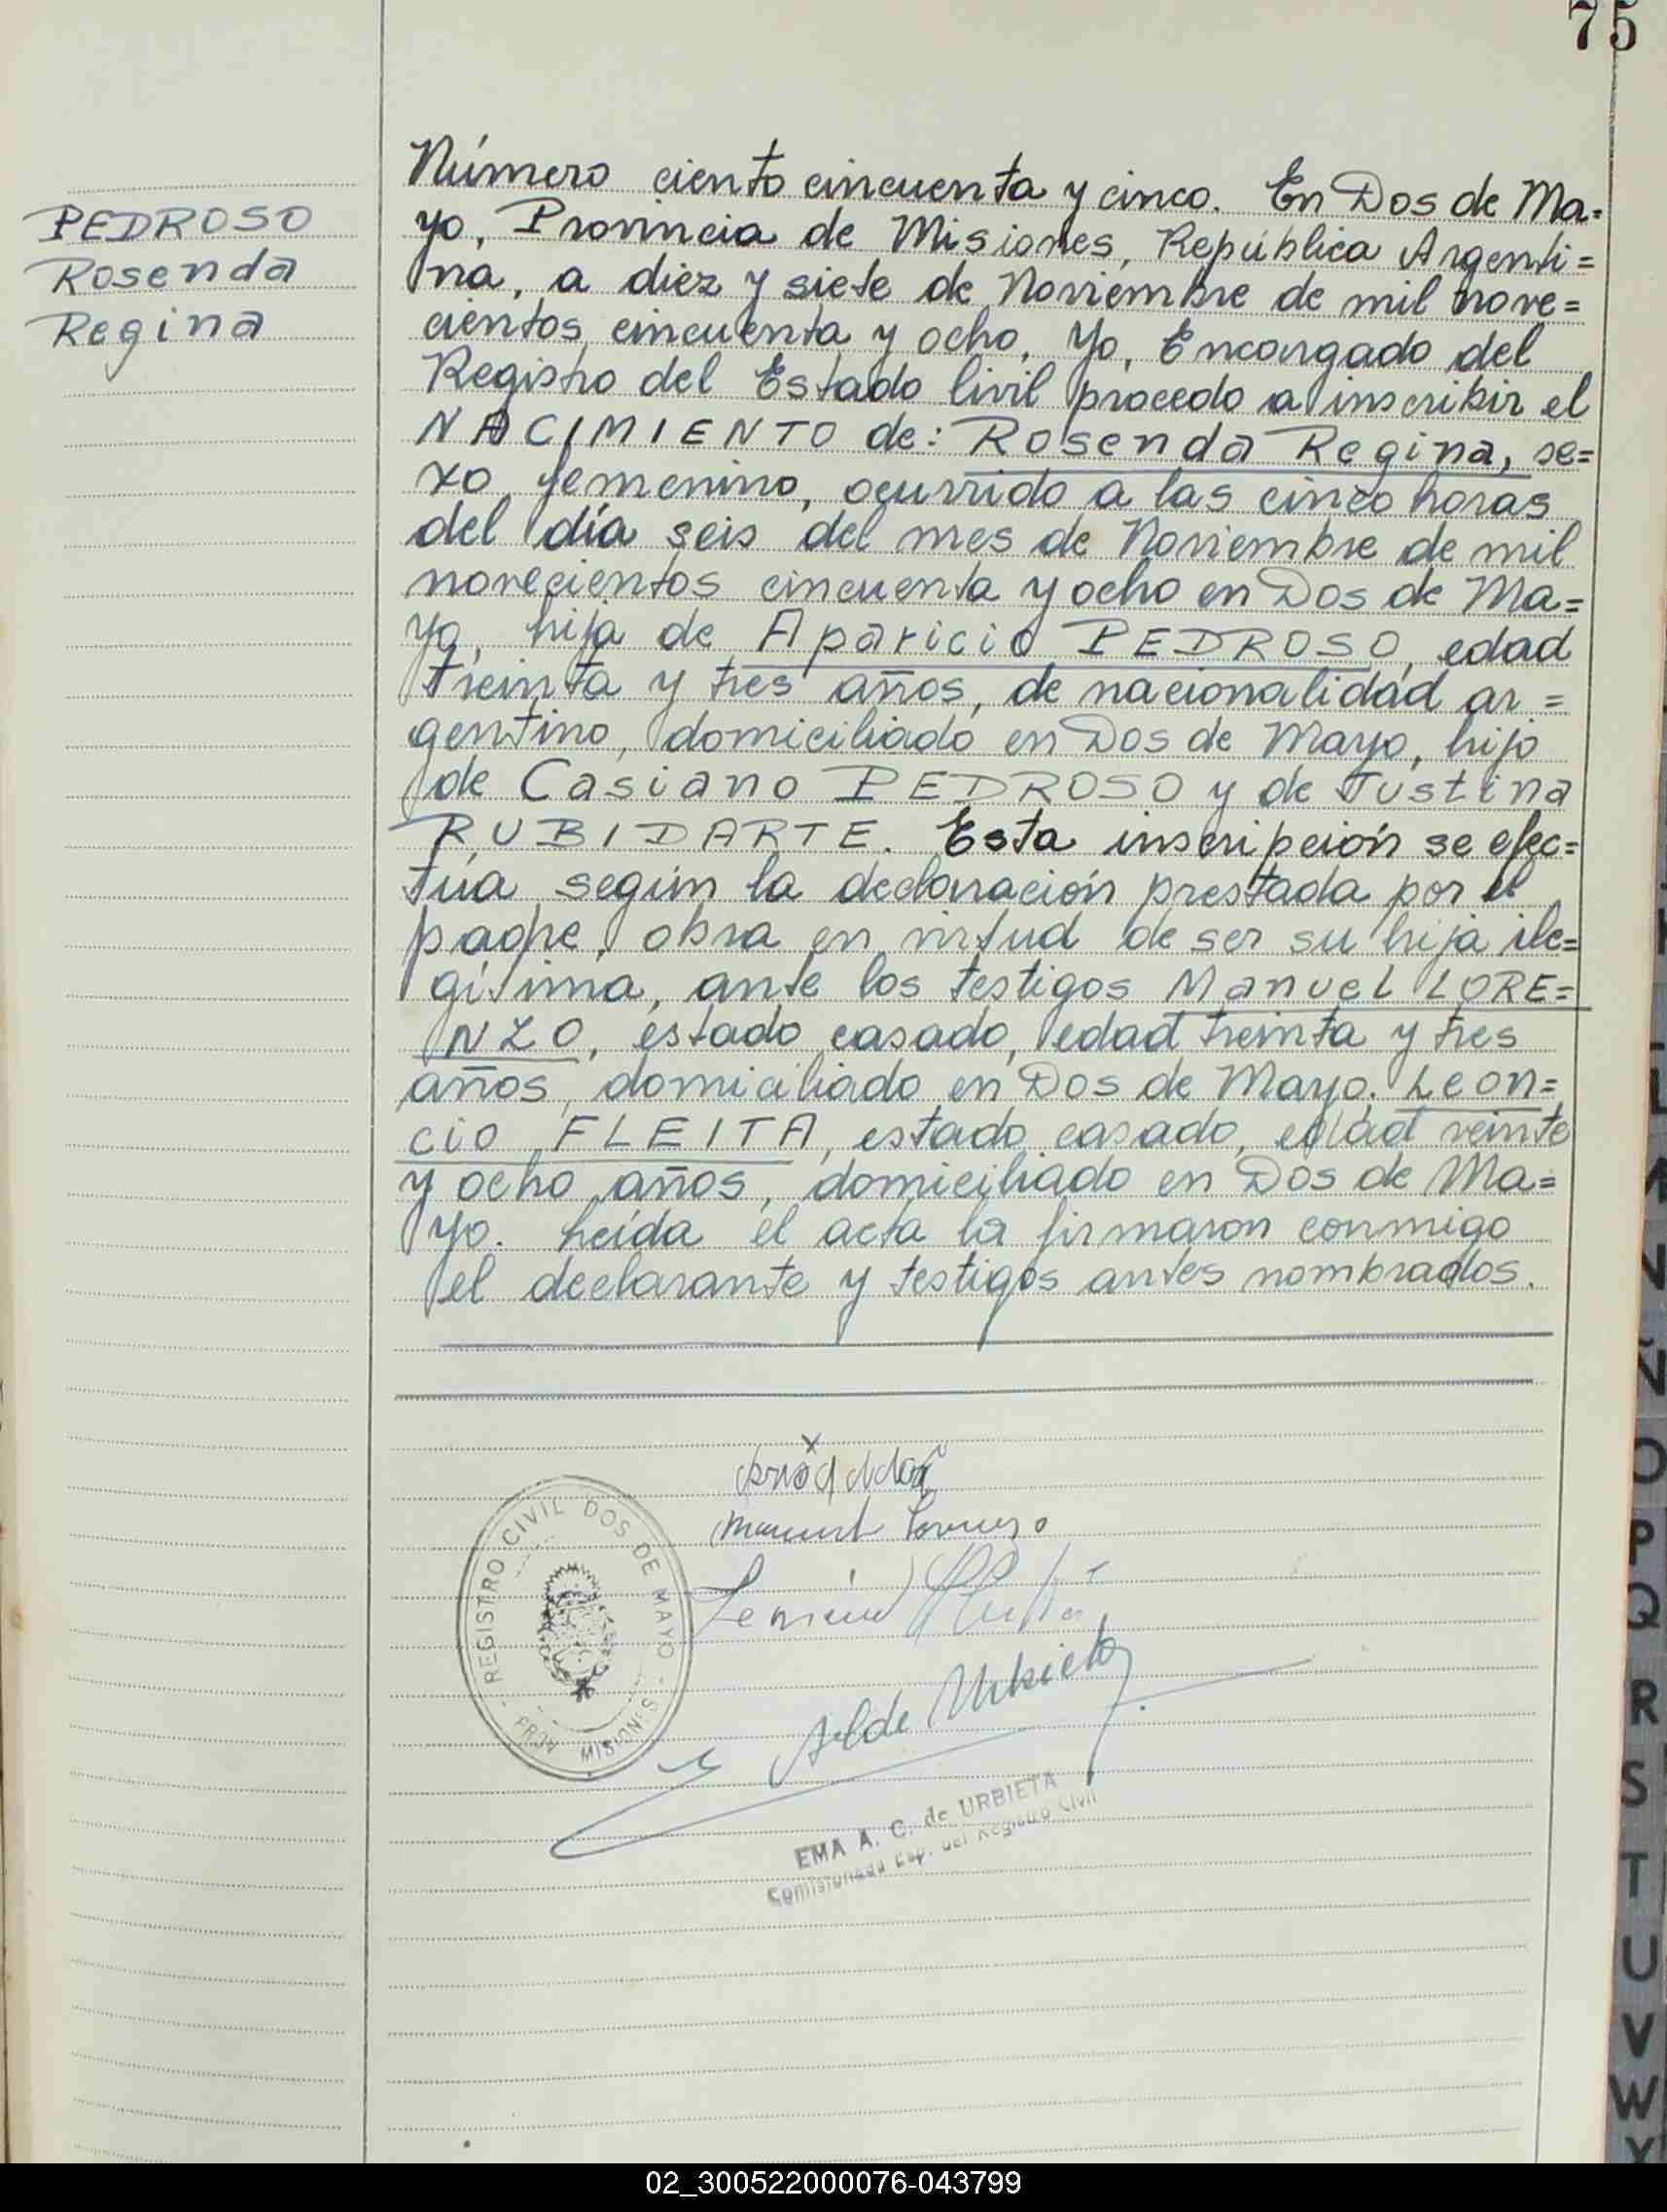 75
PEDROSO
Rosenda
Regina
Número ciento cincuenta y cinco. En Dos de Ma=
yo, Provincia de Misiones, República Argenti=
na, a diez y siete de Noviembre de mil nove=
cientos cincuenta y ocho, Yo, Encargado del
Registro del Estado Civil procedo a inscribir el
NACIMIENTO de: Rosenda Regina, se=
xo femenino, ocurrido a las cinco horas
del día seis del mes de Noviembre de mil
novecientos cincuenta y ocho en Dos de Ma=
yo, hija de Aparicio PEDROSO, edad
treinta y tres años, de nacionalidad ar=
gentino, domiciliado en Dos de Mayo, hijo
de Casiano PEDROSO y de Justina
RUBIDARTE. Esta inscripción se efec=
túa según la declaración prestada por el
padre, obra en virtud de ser su hija ile=
gítima, ante los testigos Manuel LORE=
NZO, estado casado, edad treinta y tres
años, domiciliado en Dos de Mayo. Leon=
cio FLEITA, estado casado, edad veinte
y ocho años, domiciliado en Dos de Ma=
yo. Leída el acta la firmaron conmigo
el declarante y testigos antes nombrados.
x
Manuel Lorenzo
REGISTRO CIVIL DOS DE MAYO - PROV. MISIONES -
A. C. de Urbieta
EMA A. C. de URBIETA
Comisionada Esp. del Registro Civil
L
M
N
Ñ
O
P
Q
R
S
T
U
V
W
X
02_300522000076-043799